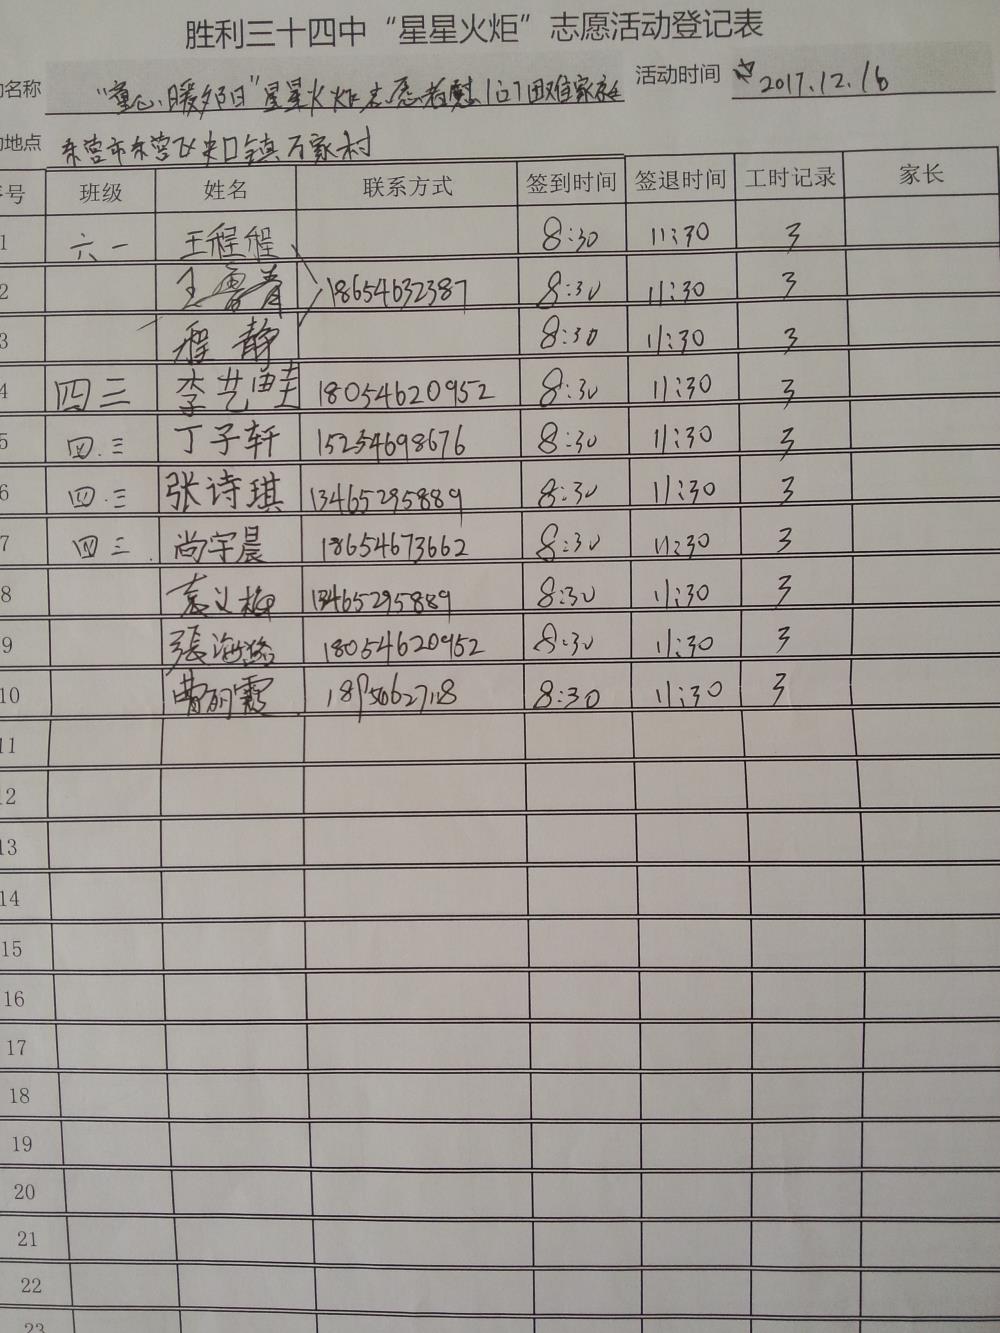 胜利三十四中“星星火炬”志愿活动登记表
名称 “童心暖夕阳”星星火炬志愿者慰问困难家庭 活动时间 2017.12.16
地点 东营市东营区史口镇万家村
号 班级 姓名 联系方式 签到时间 签退时间 工时记录 家长
1 六一 王程程 8:30 11:30 3
2 王雪青 18654632387 8:30 11:30 3
3 程静 8:30 11:30 3
4 四三 李艺 18054620952 8:30 11:30 3
5 四.三 丁子轩 15254698676 8:30 11:30 3
6 四.三 张诗琪 13465295889 8:30 11:30 3
7 四三. 尚宇晨 18654673662 8:30 11:30 3
8 袁义梅 13465295889 8:30 11:30 3
9 張海路 18054620952 8:30 11:30 3
10 曹丽霞 8:30 11:30 3
11
12
13
14
15
16
17
18
19
20
21
22
23